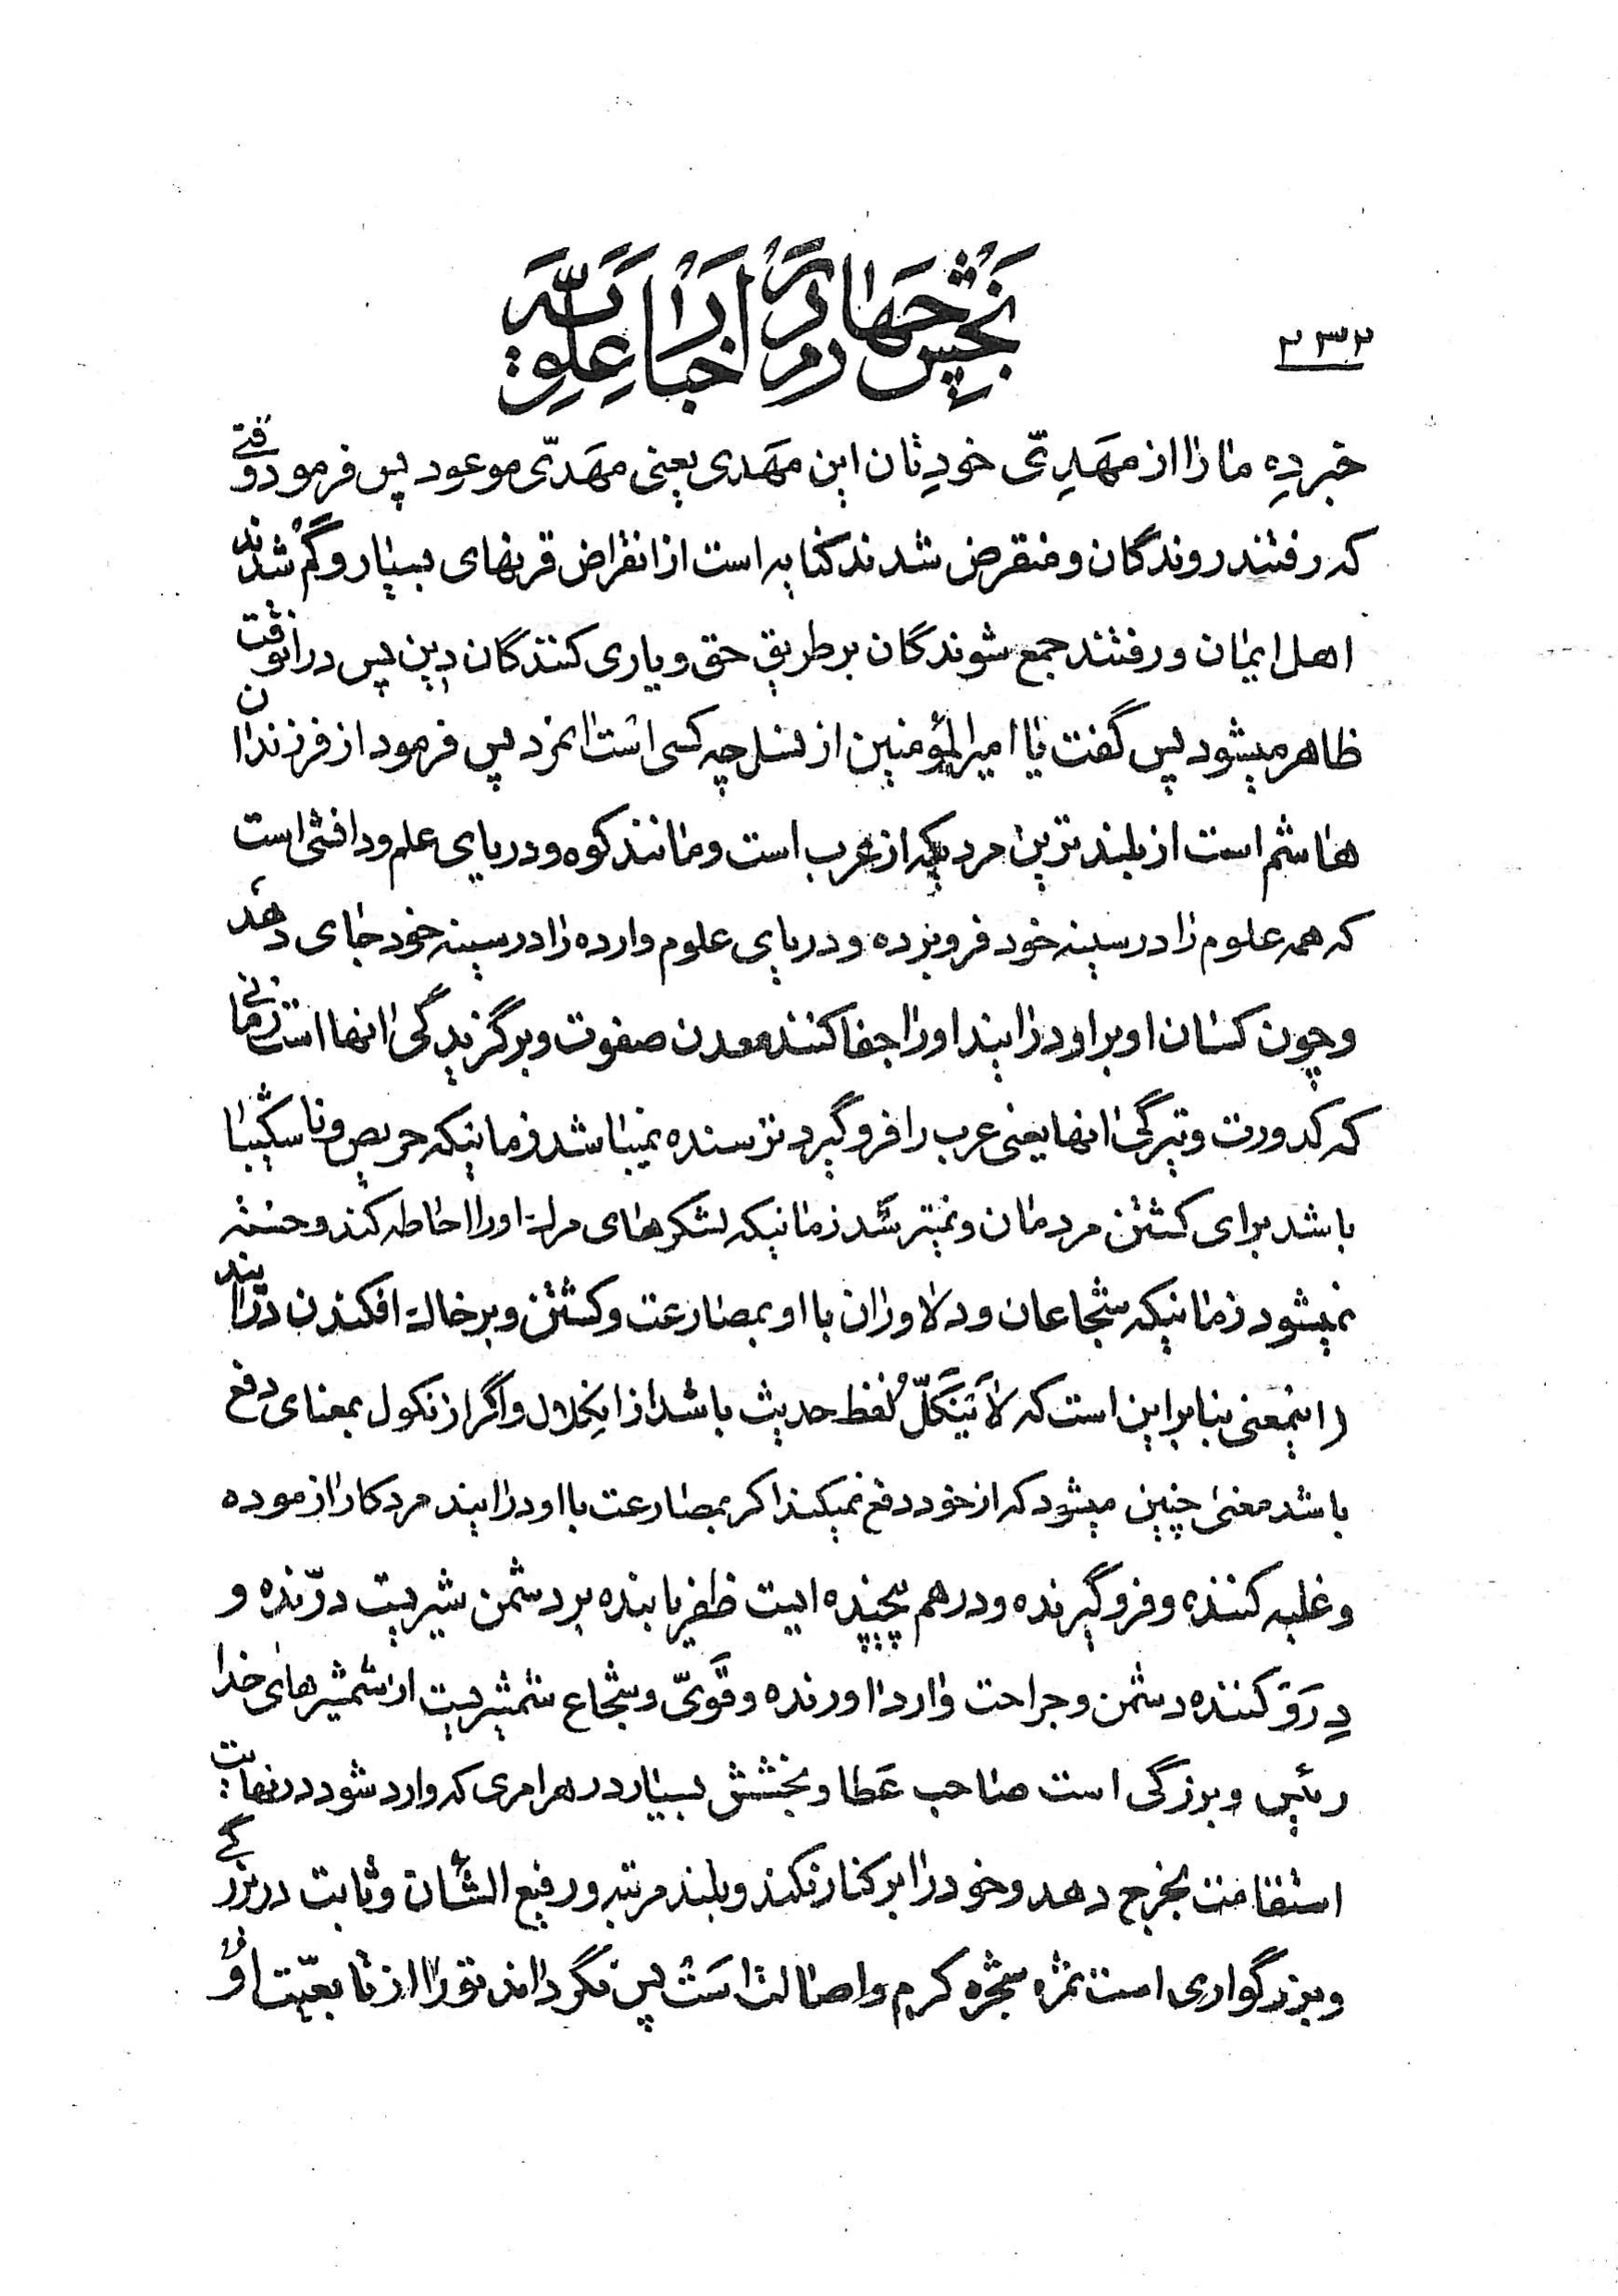 ۲۳۲
بخش چهارم در اخبار علویه
خبر ده ما را از مهدیّ خودتان این مهدی یعنی مهدیّ موعود پس فرمود وقتی
که رفتند روندگان و منقرض شدند کنایه است از انقراض قرنهای بسیار و گم شدند
اهل ایمان و رفتند جمع شوندگان بر طریق حق و یاری کنندگان دین پس در انوقت
ظاهر میشود پس گفت یا امیر المؤمنین از نسل چه کسی است انمرد پس فرمود از فرزندان
هاشم است از بلندترین مردیکه از عرب است و مانند کوه و دریای علم و دانش است
که همه علوم را در سینه خود فرو برده و دریای علوم وارده را در سینه خود جای دهد
و چون کسان او بر او در ایند او را جفا کنند معدن صفوت و برگزیدگی انها است زمانی
که کدورت و تیرگی انها یعنی عرب را فرو گیرد ترسنده نمیباشد زمانیکه حریص و نا شکیبا
باشد برای کشتن مردمان و نمیترسد زمانیکه لشکرهای مرک او را احاطه کند و خسته
نمیشود زمانیکه شجاعان و دلاوران با او بمصارعت و کشتن و بر خاک افکندن در ایند
(اینمعنی بنا بر این است که لا یَنکَلّ لفظ حدیث باشد از انکلال و اگر از نکول بمعنای دفع
باشد معنی چنین میشود که از خود دفع نمیکند اکر بمصارعت با او در ایند مرد کار ازموده
و غلبه کننده و فرو گیرنده و در هم پیچیده ایست ظفر یابنده بر دشمن شیریست درّنده و
دِرَوَ کننده دشمن و جراحت وارد اورنده و قویّ و شجاع شمشیریست از شمشیرهای خدا
رئیس و بزرگی است صاحب عطا و بخشش بسیار در هر امری که وارد شود در نهایت
استقامت بخرج دهد و خود را بر کنار نکند و بلند مرتبه و رفیع الشأن و ثابت در بزرگی
و بزرگواری است ثمره شجره کرم و اصالت است پس نگرداند تو را از تابعیّت او